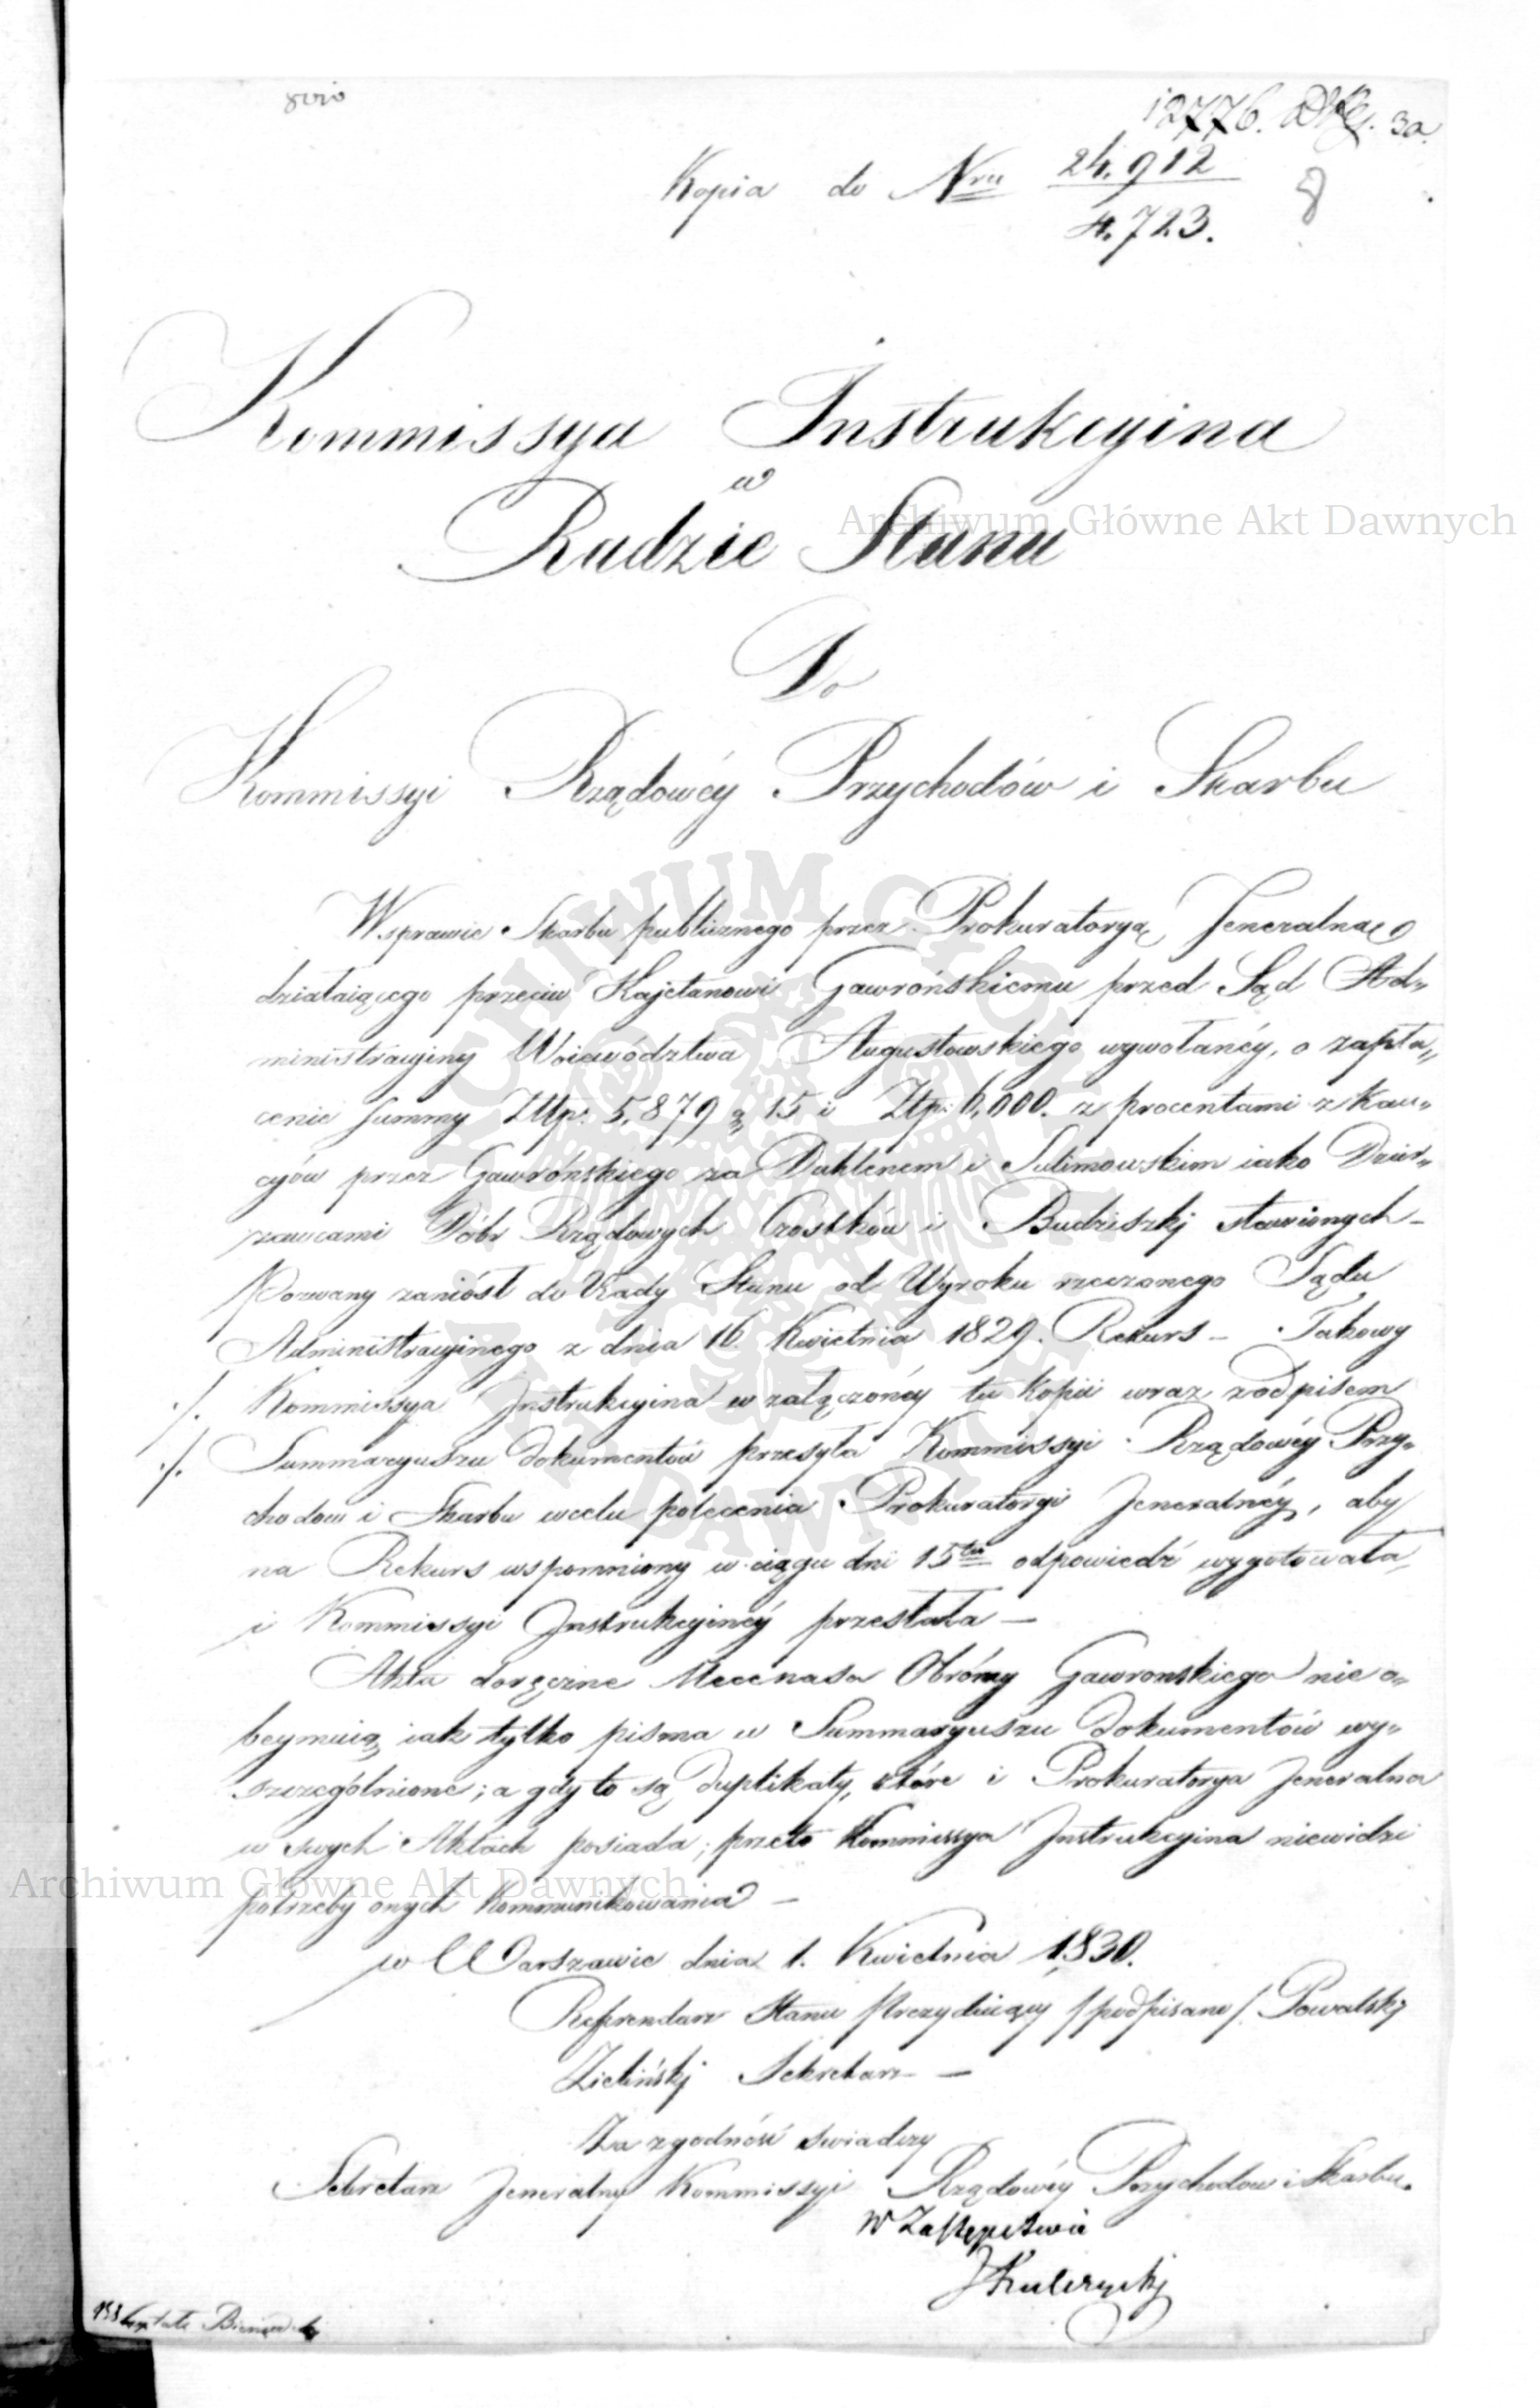 12776.
Kopia do Nru 24.912
4.723.
8
Kommissya Instrukcyina
w
Radzie Stanu
Do
Kommissyi Rządowéy Przychodów i Skarbu
W sprawie Skarbu publicznego przez Prokuratoryą Jeneralną
działaiącego przeciw Kajetanowi Gawrońskiemu przed Sąd Ad„
ministracyiny Woiewództwa Augustowskiego wywołanéy, o zapła„
cenie Summy Złtp. 5,879 g 15 i Ztp. 6,000. z procentami z Kau„
cyów przez Gawrońskiego za Duhlenem i Sulimowskim iako Dzier„
zawcami Dóbr Rządowych Czostków i Budziszkj stawionych –
Pozwany zaniósł do Rady Stanu od Wyroku rzeczonego Sądu
Administracyinego z dnia 16. Kwietnia 1829. Rekurs – Takowy
./. Kommissya Instrukcyina w załączonéy tu kopii wraz z odpisem
./. Summaryuszu dokumentów przesyła Kommissyi Rządowéy Przy„
chodow i Skarbu w celu polecenia Prokuratoryi Jeneralnéy, aby
na Rekurs wspomniony w ciągu dni 15tu odpowiedź wygotowała
i Kommissyi Instrukcyinéy przesłała –
Akta doręczne Mecenasa Obrońcy Gawronskiego nie o„
beymuią iak tylko pisma w Summaryuszu dokumentów wy„
szczególnione; a gdy to są duplikaty, które i Prokuratorya Jeneralna
w swych Aktach posiada; przeto Kommissya Instrukcyina niewidzi
potrzeby onych kommunikowania –
w Warszawie dnia 1. Kwietnia 1830.
Referendarz Stanu Prezyduiący /podpisano/ Powalskj
Zielińskj Sekretarz –
Za zgodność swiadczy
Sekretarz Jeneralny Kommissyi Rządowéy Przychodow i Skarbu.
W Zastępstwie
JKulczyckj
Archiwum Główne Akt Dawnych
Archiwum Główne Akt Dawnych
ARCHIWUM GŁÓWNE AKT DAWNYCH